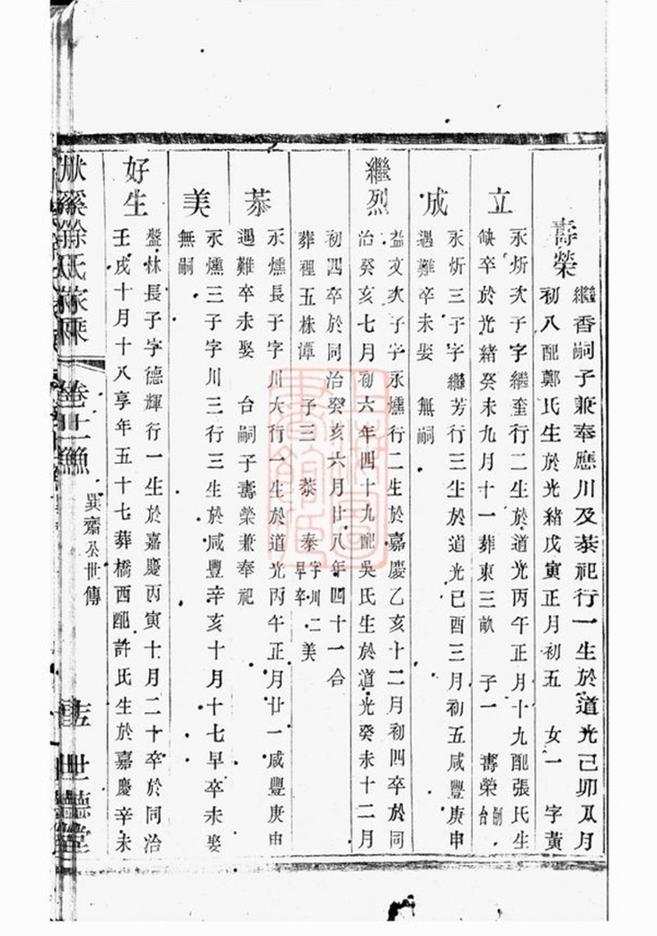 壽榮
繼香嗣子兼奉應川及荣祀行一生於道光己卯瓜月
初八配鄭氏生於光緒戊寅正月初五　女一　字黃
立
永炘次子字繼奎行二生於道光丙午正月十九配張氏生
缺卒於光緒癸未九月十一葬東三畝　子一　壽榮嗣台
成
永炘三子字繼芳行三生於道光己酉三月初五咸豐庚申
遇難卒未娶　無嗣
繼烈
益文次子字永燻行二生於嘉慶乙亥十二月初四卒於同
治癸亥七月初六年四十九配吳氏生於道光癸未十二月
初四卒於同治癸亥六月廿八年四十一合
葬裡五株潭　子三　恭　泰字川二早卒　美
恭
永燻長子字川大行一生於道光丙午正月廿一咸豐庚申
遇難卒未娶　台嗣子壽榮兼奉祀
美
永燻三子字川三行三生於咸豐辛亥十月十七早卒未娶
無嗣
好生
盤林長子字德輝行一生於嘉慶丙寅十月二十卒於同治
壬戌十月十八享年五十七葬橋西配許氏生於嘉慶辛未
溪徐氏家乘
卷十二
巽齋公世傳
世德堂